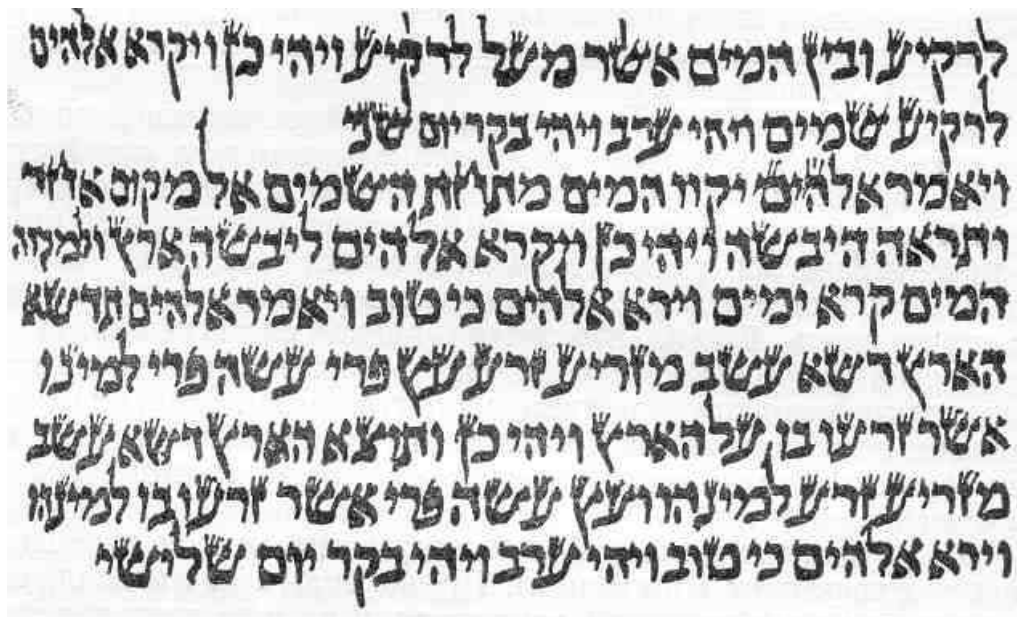 לרקיע ובין המים אשר מעל לרקיע ויהי כן ויקרא אלהים
לרקיע שמים ויהי ערב ויהי בקר יום שני
ויאמר אלהים יקוו המים מתחת השמים אל מקום אחד
ותראה היבשה ויהי כן ויקרא אלהים ליבשה ארץ ולמקוה
המים קרא ימים וירא אלהים כי טוב ויאמר אלהים תדשא
הארץ דשא עשב מזריע זרע עץ פרי עשה פרי למינו
אשר זרעו בו על הארץ ויהי כן ותוצא הארץ דשא עשב
מזריע זרע למינהו ועץ עשה פרי אשר זרעו בו למינהו
וירא אלהים כי טוב ויהי ערב ויהי בקר יום שלישי